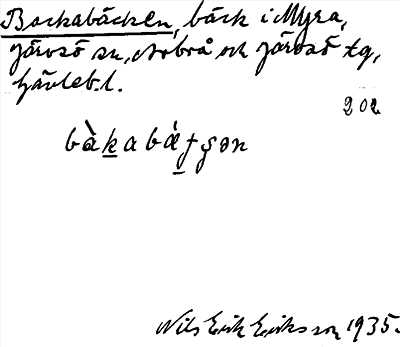 Backabäcken, bäck i Myra,
Järvsö sn, Arbrå och Järvsö tg,
Gävleb. l.
202
bàkabä̀tʃən
Nils Erik Eriksson 1935.